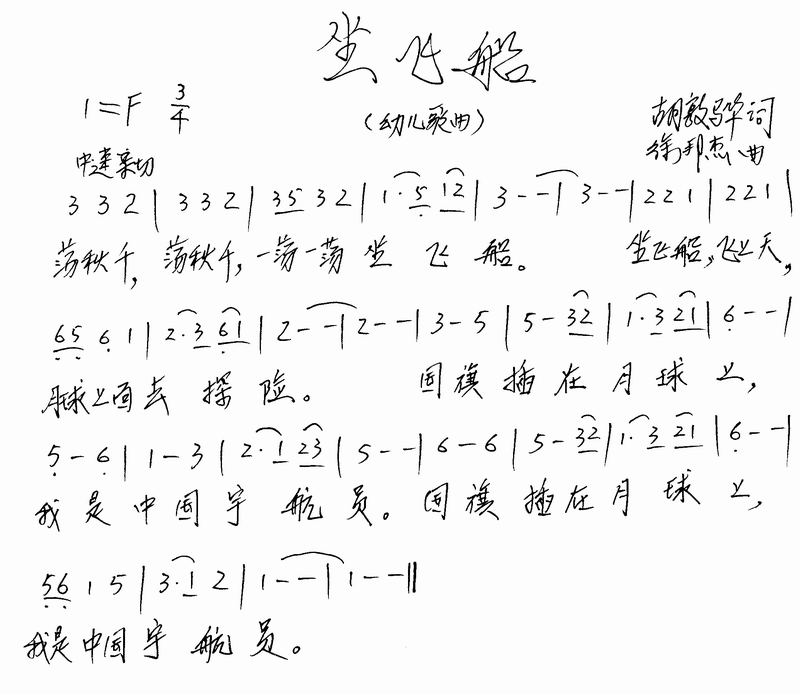 坐飞船
1=F 3/4
(幼儿歌曲)
胡敦骅词
徐邦杰曲
中速亲切
3 3 2 | 3 3 2 | 35 3 2 | 1·5 12 | 3 - - | 3 - - | 2 2 1 | 2 2 1 |
荡秋千, 荡秋千, 一荡一荡 坐 飞 船。 坐飞船, 飞上天,
65 6 1 | 2·3 61 | 2 - - | 2 - - | 3 - 5 | 5 - 32 | 1·3 21 | 6 - - |
月球上面去 探 险。 国 旗 插 在 月 球 上,
5 - 6 | 1 - 3 | 2·1 23 | 5 - - | 6 - 6 | 5 - 32 | 1·3 21 | 6 - - |
我 是 中 国 宇 航 员。 国 旗 插 在 月 球 上,
56 1 5 | 3·1 2 | 1 - - | 1 - - ‖
我是中国宇 航 员。